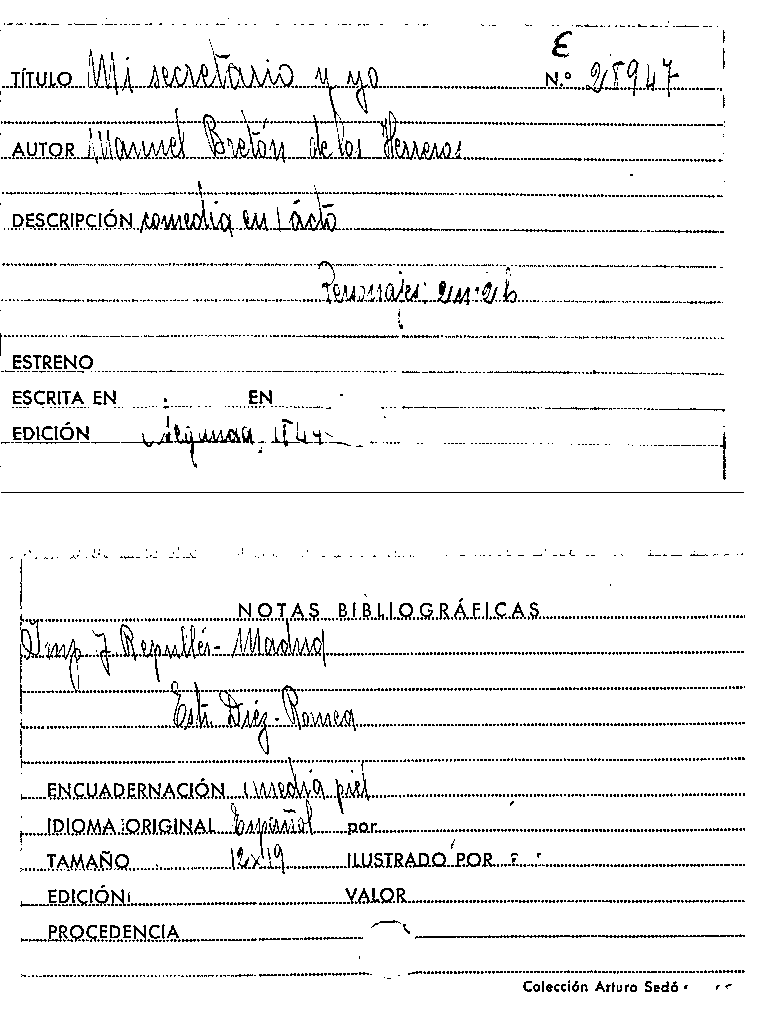 E
TÍTULO Mi secretario y yo N.º 28947
AUTOR Manuel Bretón de los Herreros
DESCRIPCIÓN comedia en 1 acto
Personajes: 2m. 2h
ESTRENO
ESCRITA EN EN
EDICIÓN Segunda, 184
NOTAS BIBLIOGRÁFICAS
Imp J Repullés - Madrid
Est. Díez - Romea
ENCUADERNACIÓN media piel
IDIOMA ORIGINAL Español por
TAMAÑO 12x19 ILUSTRADO POR
EDICIÓN VALOR
PROCEDENCIA
Colección Arturo Sedó